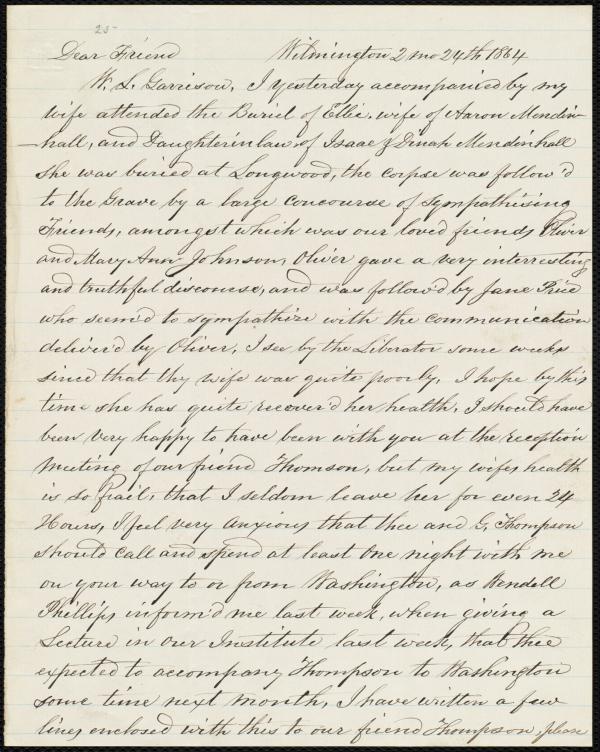 25-
Dear Friend Wilmington 2 mo 24th 1864
W. L. Garrison, I yesterday accompanied by my
wife attended the Buriel of Ellie, wife of Aaron Mendin-
hall, and Daughterinlaw, of Isaac & Dinah Mendinhall
she was buried at Longwood, the corpse was follow'd
to the Grave by a large concourse of sympathising
Friends, amongst which was our loved friends Oliver
and Mary Ann Johnson, Oliver gave a very interresting
and truthful discourse, and was follow'd by Jane Price
who seem'd to sympathize with the communication
deliver'd by Oliver. I see by the Liberator some weeks
since that thy wife was quite poorly, I hope by this
time she has quite recover'd her health. I should have
been very happy to have been with you at the reception
meeting of our friend Thomson, but my wifes health
is so frail, that I seldom leave her for even 24
Hours, I feel very anxious that thee and G. Thompson
should call and spend at least One night with me
on your way to or from Washington, as Wendell
Phillips inform'd me last week, when giving a
Lecture in our Institute last week, that thee
expected to accompany Thompson to Washington
some time next month, I have written a few
lines enclosed with this to our friend Thompson, please